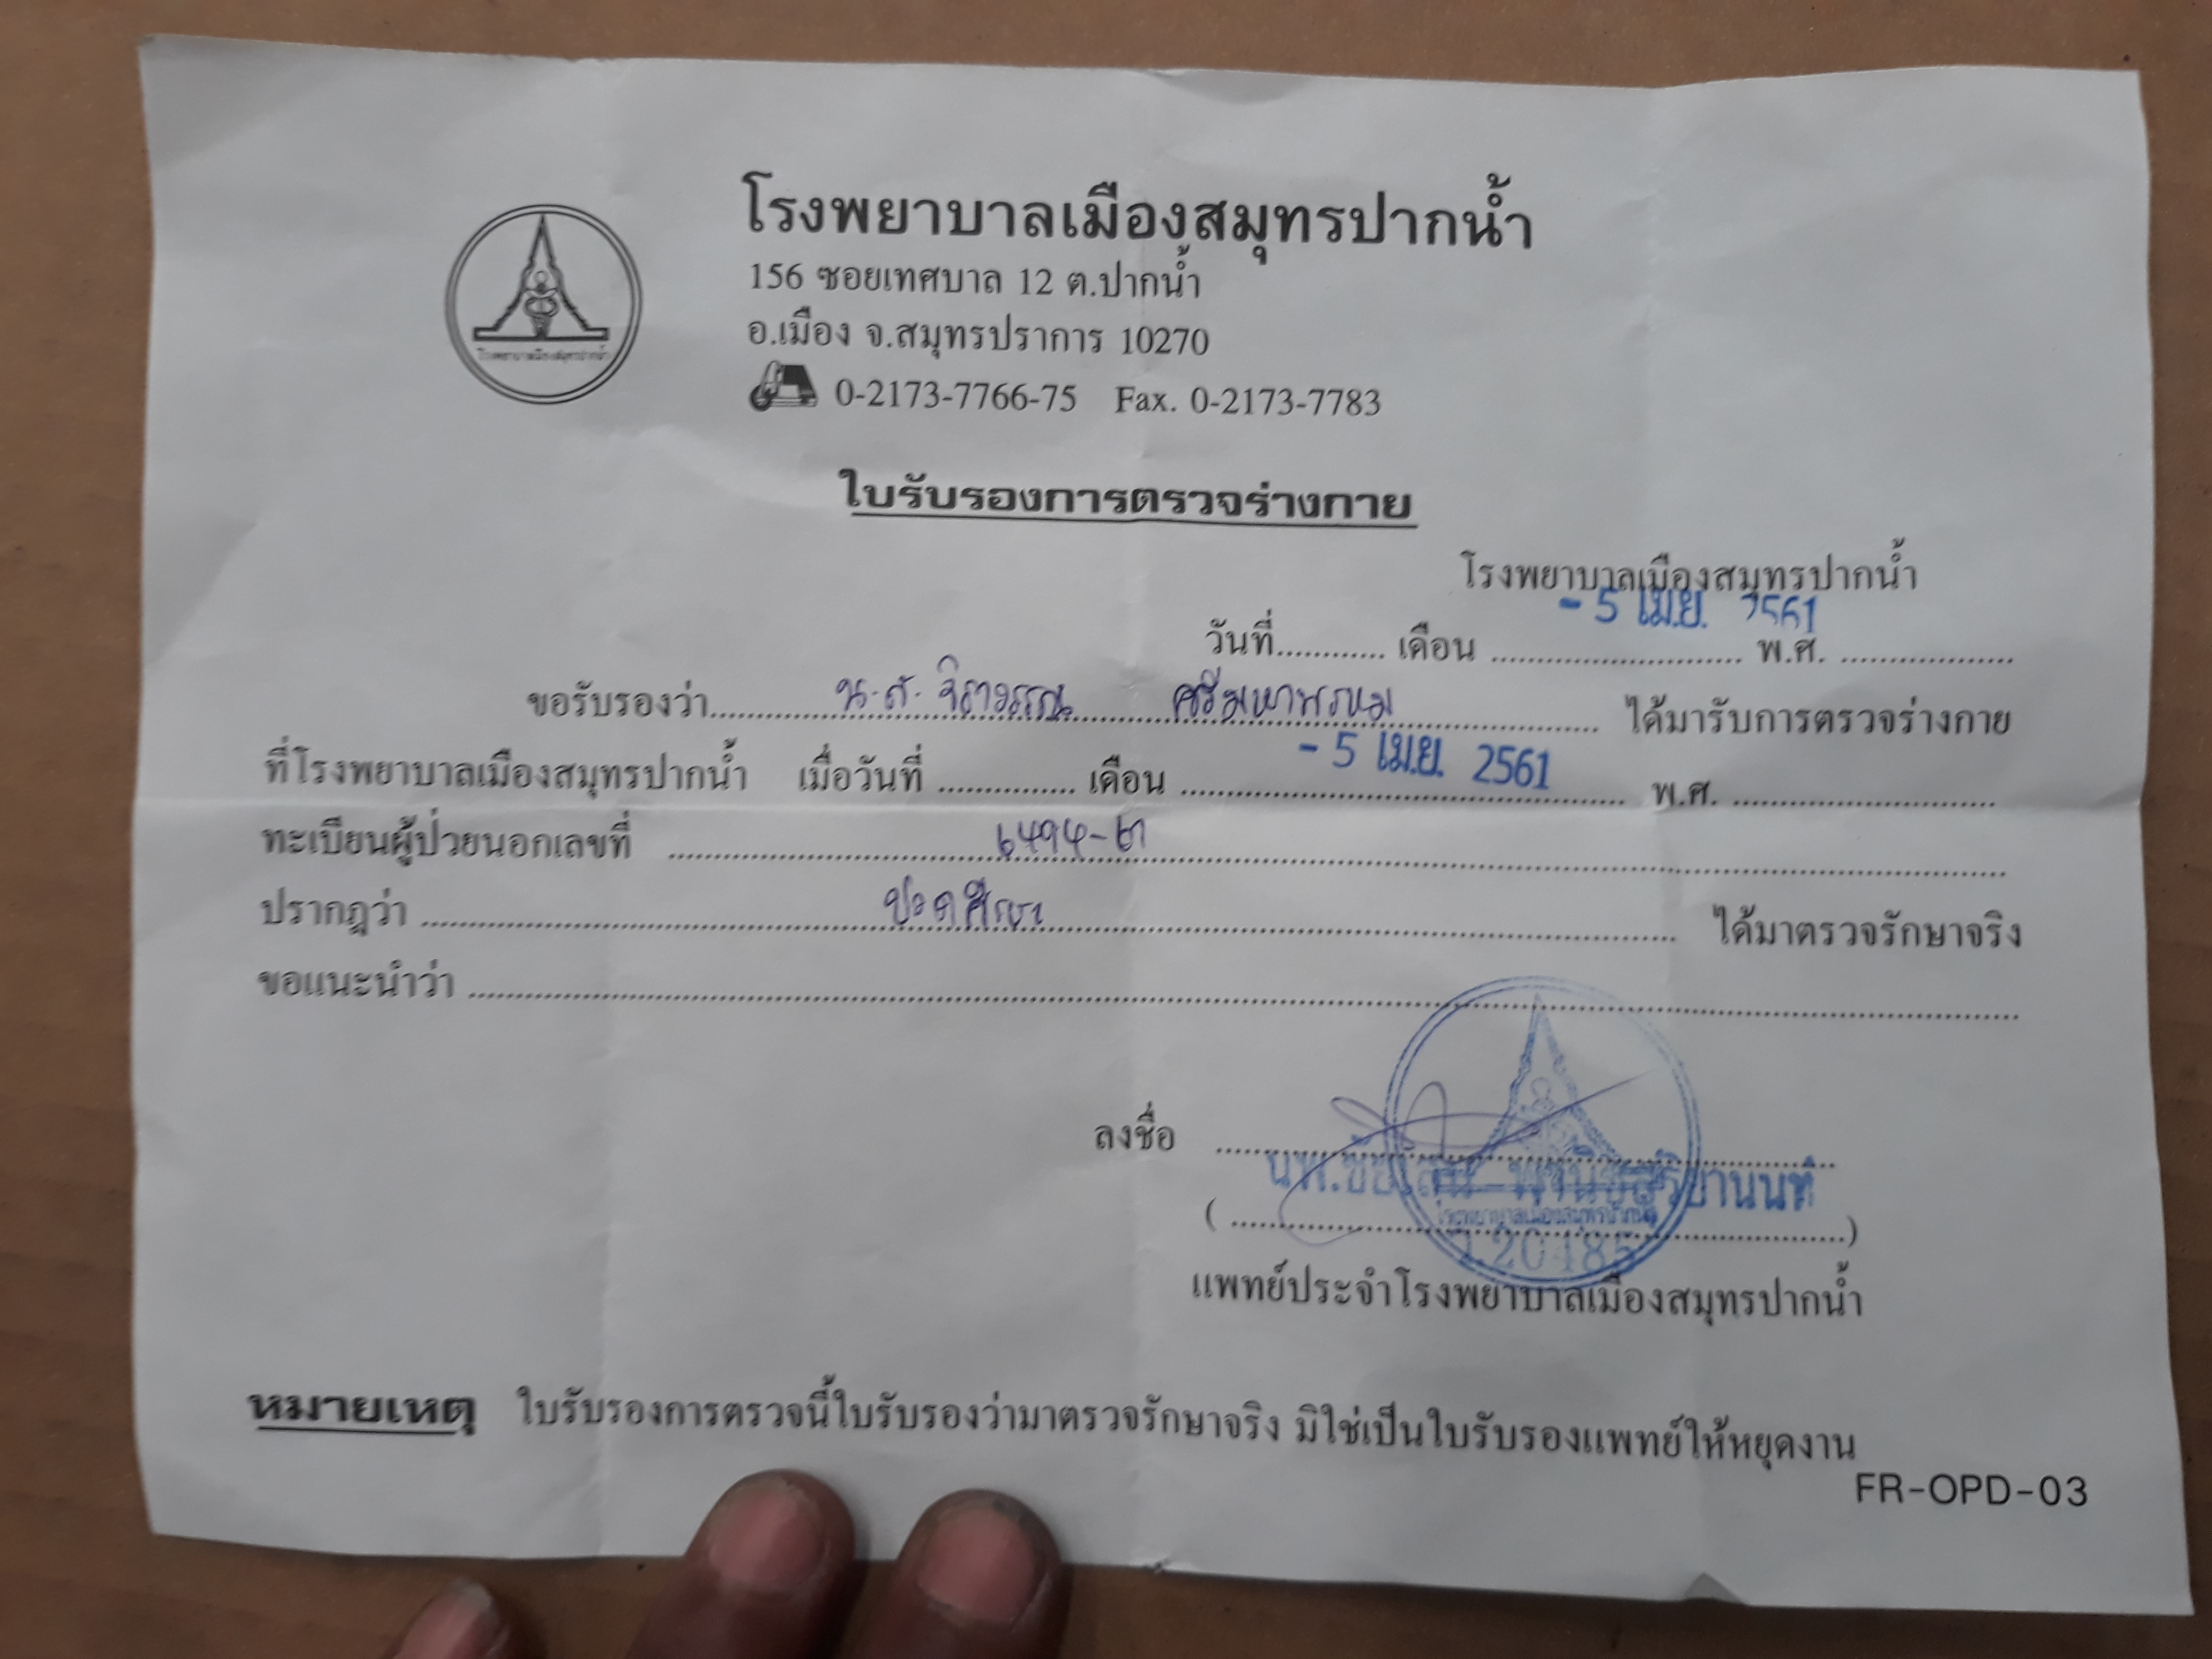 โรงพยาบาลเมืองสมุทรปากน้ำ
156 ซอยเทศบาล 12 ต.ปากน้ำ
อ.เมือง จ.สมุทรปราการ 10270
0-2173-7766-75 Fax. 0-2173-7783
ใบรับรองการตรวจร่างกาย
โรงพยาบาลเมืองสมุทรปากน้ำ
วันที่............ เดือน ............................ พ.ศ. .................... - 5 เม.ย. 2561
ขอรับรองว่า น.ส. ได้มารับการตรวจร่างกาย
ที่โรงพยาบาลเมืองสมุทรปากน้ำ เมื่อวันที่ ............ เดือน - 5 เม.ย. 2561 พ.ศ. ....................
ทะเบียนผู้ป่วยนอกเลขที่
ปรากฏว่า ปวดศีรษะ ได้มาตรวจรักษาจริง
ขอแนะนำว่า
ลงชื่อ
(....................)
แพทย์ประจำโรงพยาบาลเมืองสมุทรปากน้ำ
หมายเหตุ ใบรับรองการตรวจนี้ใบรับรองว่ามาตรวจรักษาจริง มิใช่เป็นใบรับรองแพทย์ให้หยุดงาน
FR-OPD-03